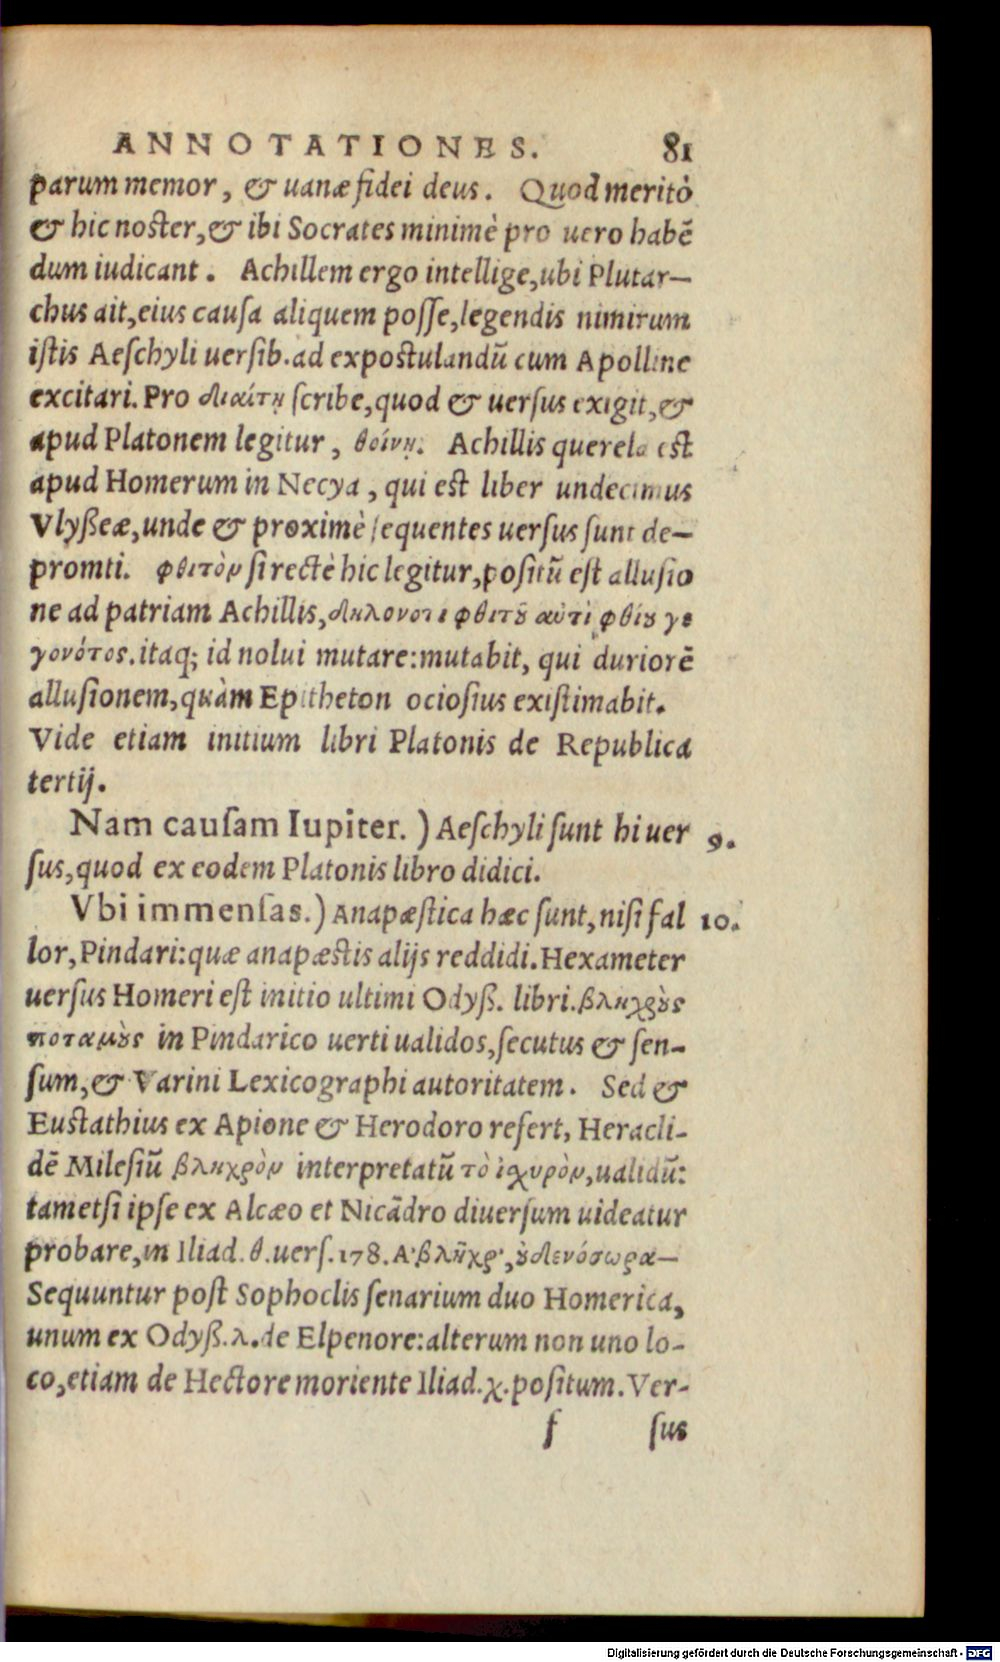 ANNOTATIONES. 81
parum memor, & uanæ fidei deus. Quod meritò
& hic noster, & ibi Socrates minimè pro uero habē
dum iudicant. Achillem ergo intellige, ubi Plutar-
chus ait, eius causa aliquem posse, legendis nimirum
istis Aeschyli uersib. ad expostulandū cum Apolline
excitari. Pro διαίτῃ scribe, quod & uersus exigit, &
apud Platonem legitur, θοίνῃ. Achillis querela est
apud Homerum in Necya, qui est liber undecimus
Vlyßeæ, unde & proximè sequentes uersus sunt de-
promti. φθιτὸν si rectè hic legitur, positū est allusio
ne ad patriam Achillis, δηλονοτι φθιτȣ͂ αὐτὶ φθίȣ γε
γονότος. itaq; id nolui mutare: mutabit, qui duriorē
allusionem, quàm Epitheton ociosius existimabit.
Vide etiam initium libri Platonis de Republica
tertij.
Nam causam Iupiter.) Aeschyli sunt hi uer 9.
sus, quod ex eodem Platonis libro didici.
Vbi immensas.) Anapæstica hæc sunt, nisi fal 10.
lor, Pindari: quæ anapæstis alijs reddidi. Hexameter
uersus Homeri est initio ultimi Odyß. libri. βληχρȣ̀ς
ποταμȣ̀ς in Pindarico uerti ualidos, secutus & sen-
sum, & Varini Lexicographi autoritatem. Sed &
Eustathius ex Apione & Herodoro refert, Heracli-
dē Milesiū βληχρὸν interpretatū τὸ ἰχυρὸν, ualidū:
tametsi ipse ex Alcæo et Nicādro diuersum uideatur
probare, in Iliad. θ. uers. 178. Α᾽βλῆχρ᾽, ȣ̓δενόσωρα-
Sequuntur post Sophoclis senarium duo Homerica,
unum ex Odyß. λ. de Elpenore: alterum non uno lo-
co, etiam de Hectore moriente Iliad. χ. positum. Ver-
f sus
Digitalisierung gefördert durch die Deutsche Forschungsgemeinschaft - DFG